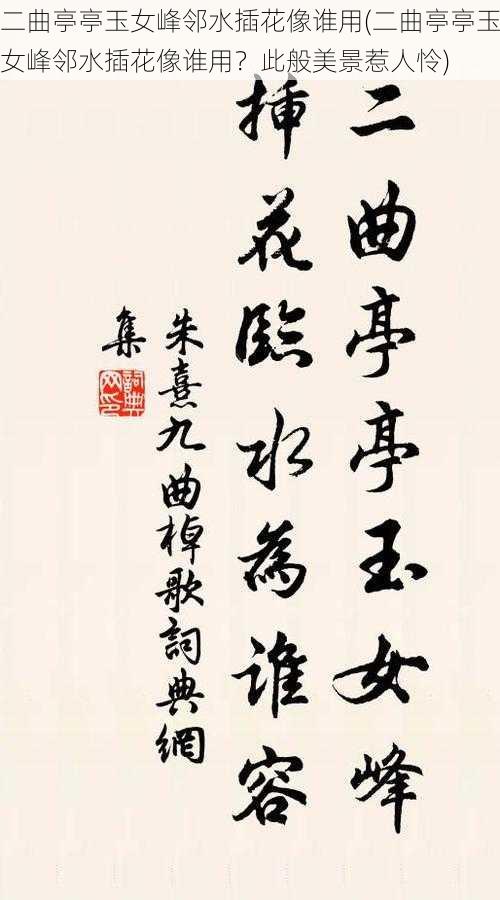 二曲亭亭玉女峰邻水插花像谁用(二曲亭亭玉
女峰邻水插花像谁用？此般美景惹人怜)
二曲亭亭玉女峰
挿花臨水為誰容
朱熹九曲棹歌詞典網
集
詞典
网印